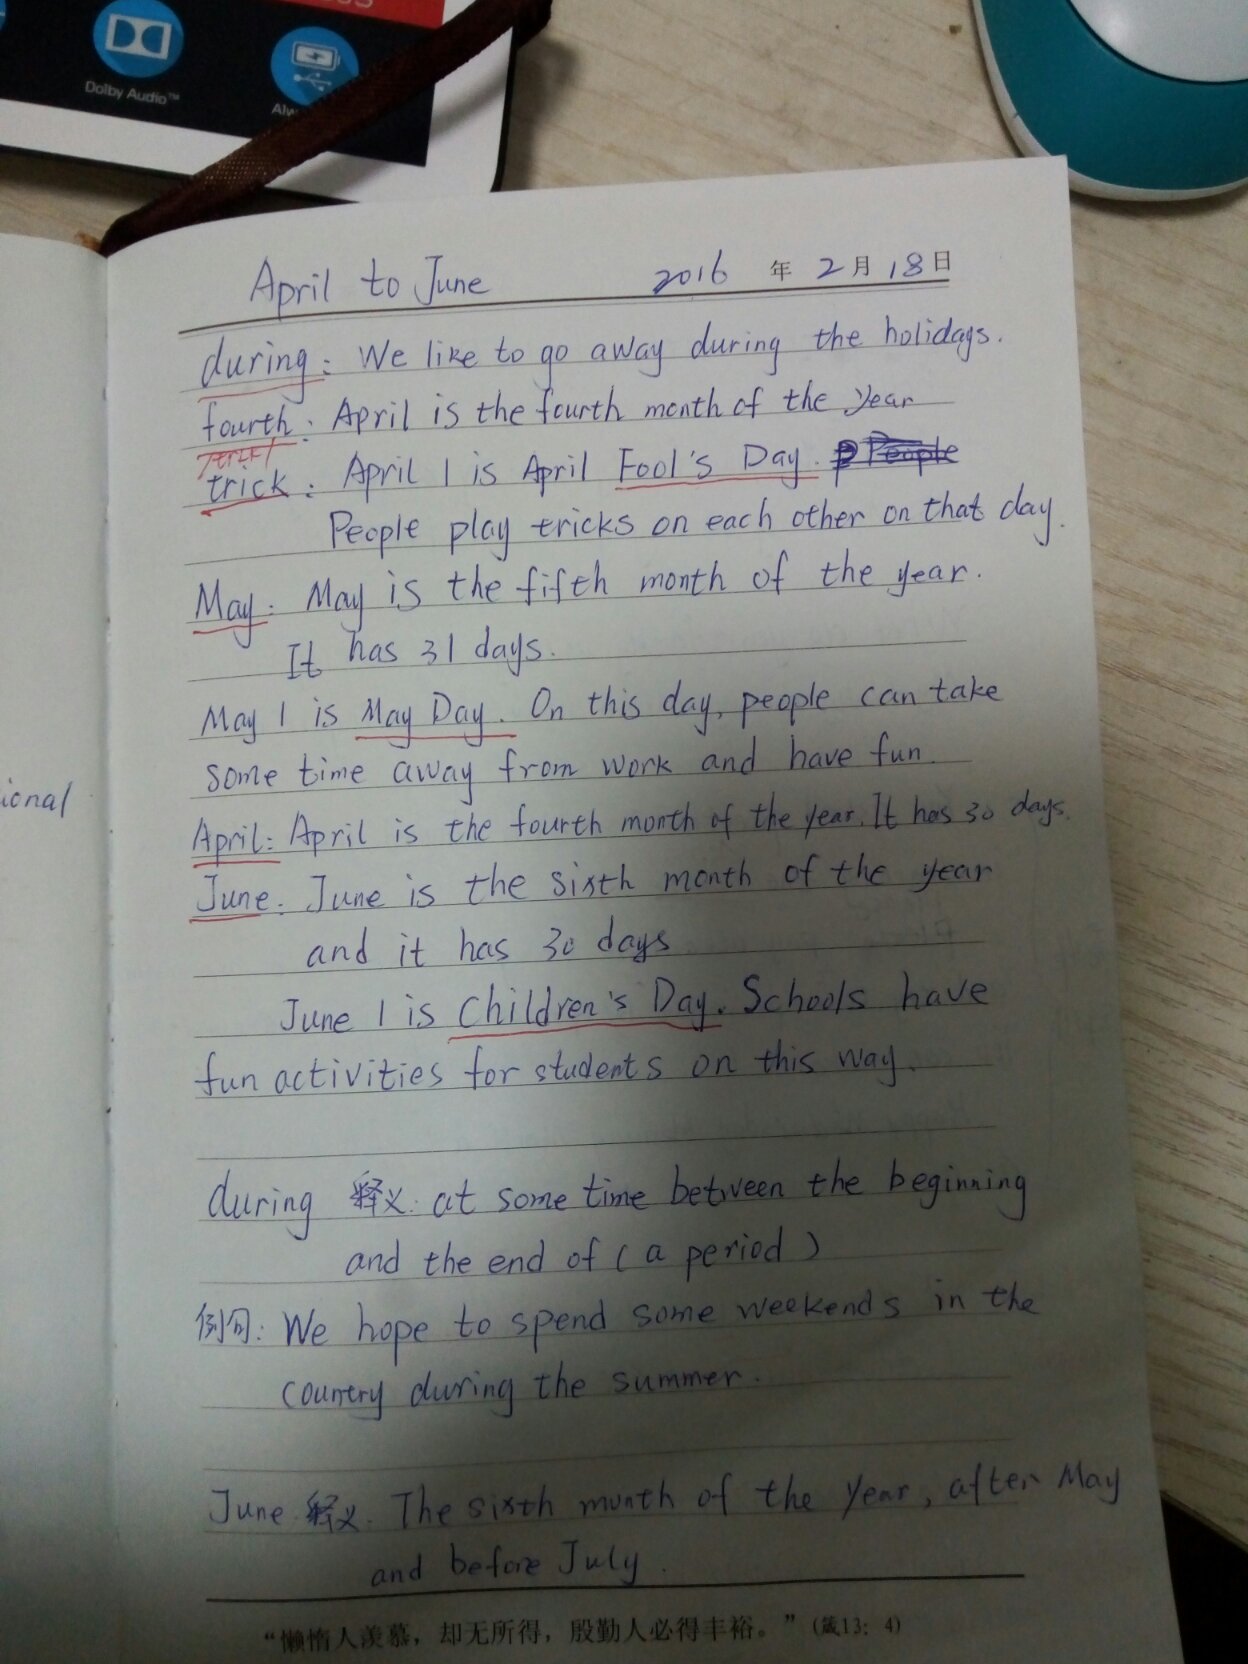 Dolby Audio™
April to June 2016 年 2 月 18 日
during: We like to go away during the holidays.
fourth: April is the fourth month of the year
trick
trick: April 1 is April Fool's Day. People
People play tricks on each other on that day.
May: May is the fifth month of the year.
It has 31 days.
May 1 is May Day. On this day, people can take
some time away from work and have fun.
April: April is the fourth month of the year. It has 30 days.
June: June is the sixth month of the year
and it has 30 days
June 1 is Children's Day. Schools have
fun activities for students on this way.
during 释义: at some time between the beginning
and the end of (a period)
例句: We hope to spend some weekends in the
country during the summer.
June 释义. The sixth month of the year, after May
and before July.
“懒惰人羡慕，却无所得，殷勤人必得丰裕。”（箴13：4）
ional